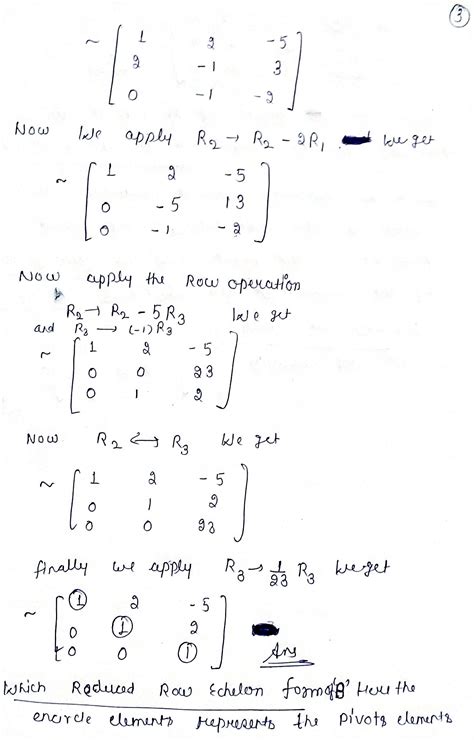 3
~ [ 1 2 -5
2 -1 3
0 -1 -2 ]
Now We apply R2 → R2 - 2R1 We get
~ [ 1 2 -5
0 -5 13
0 -1 -2 ]
Now apply the Row operation
R2 → R2 - 5R3 We get
and R3 → (-1) R3
~ [ 1 2 -5
0 0 23
0 1 2 ]
Now R2 ↔ R3 We get
~ [ 1 2 -5
0 1 2
0 0 23 ]
finally we apply R3 → 1/23 R3 We get
~ [ 1 2 -5
0 1 2
0 0 1 ] Ans
Which Reduced Row Echelon form of 'B' Here the
encircle elements represents the Pivots elements